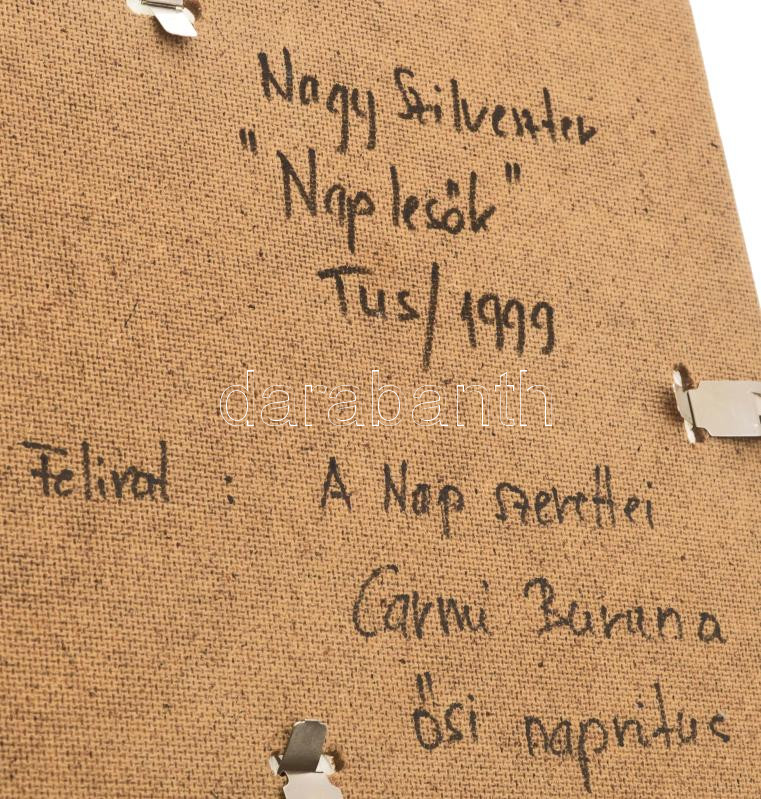 Nagy Szilveszter
"Naplesők"
Tus/1999
darabanth
Felirat : A Nap szerettei
Carmi Burana
Ősi napritus